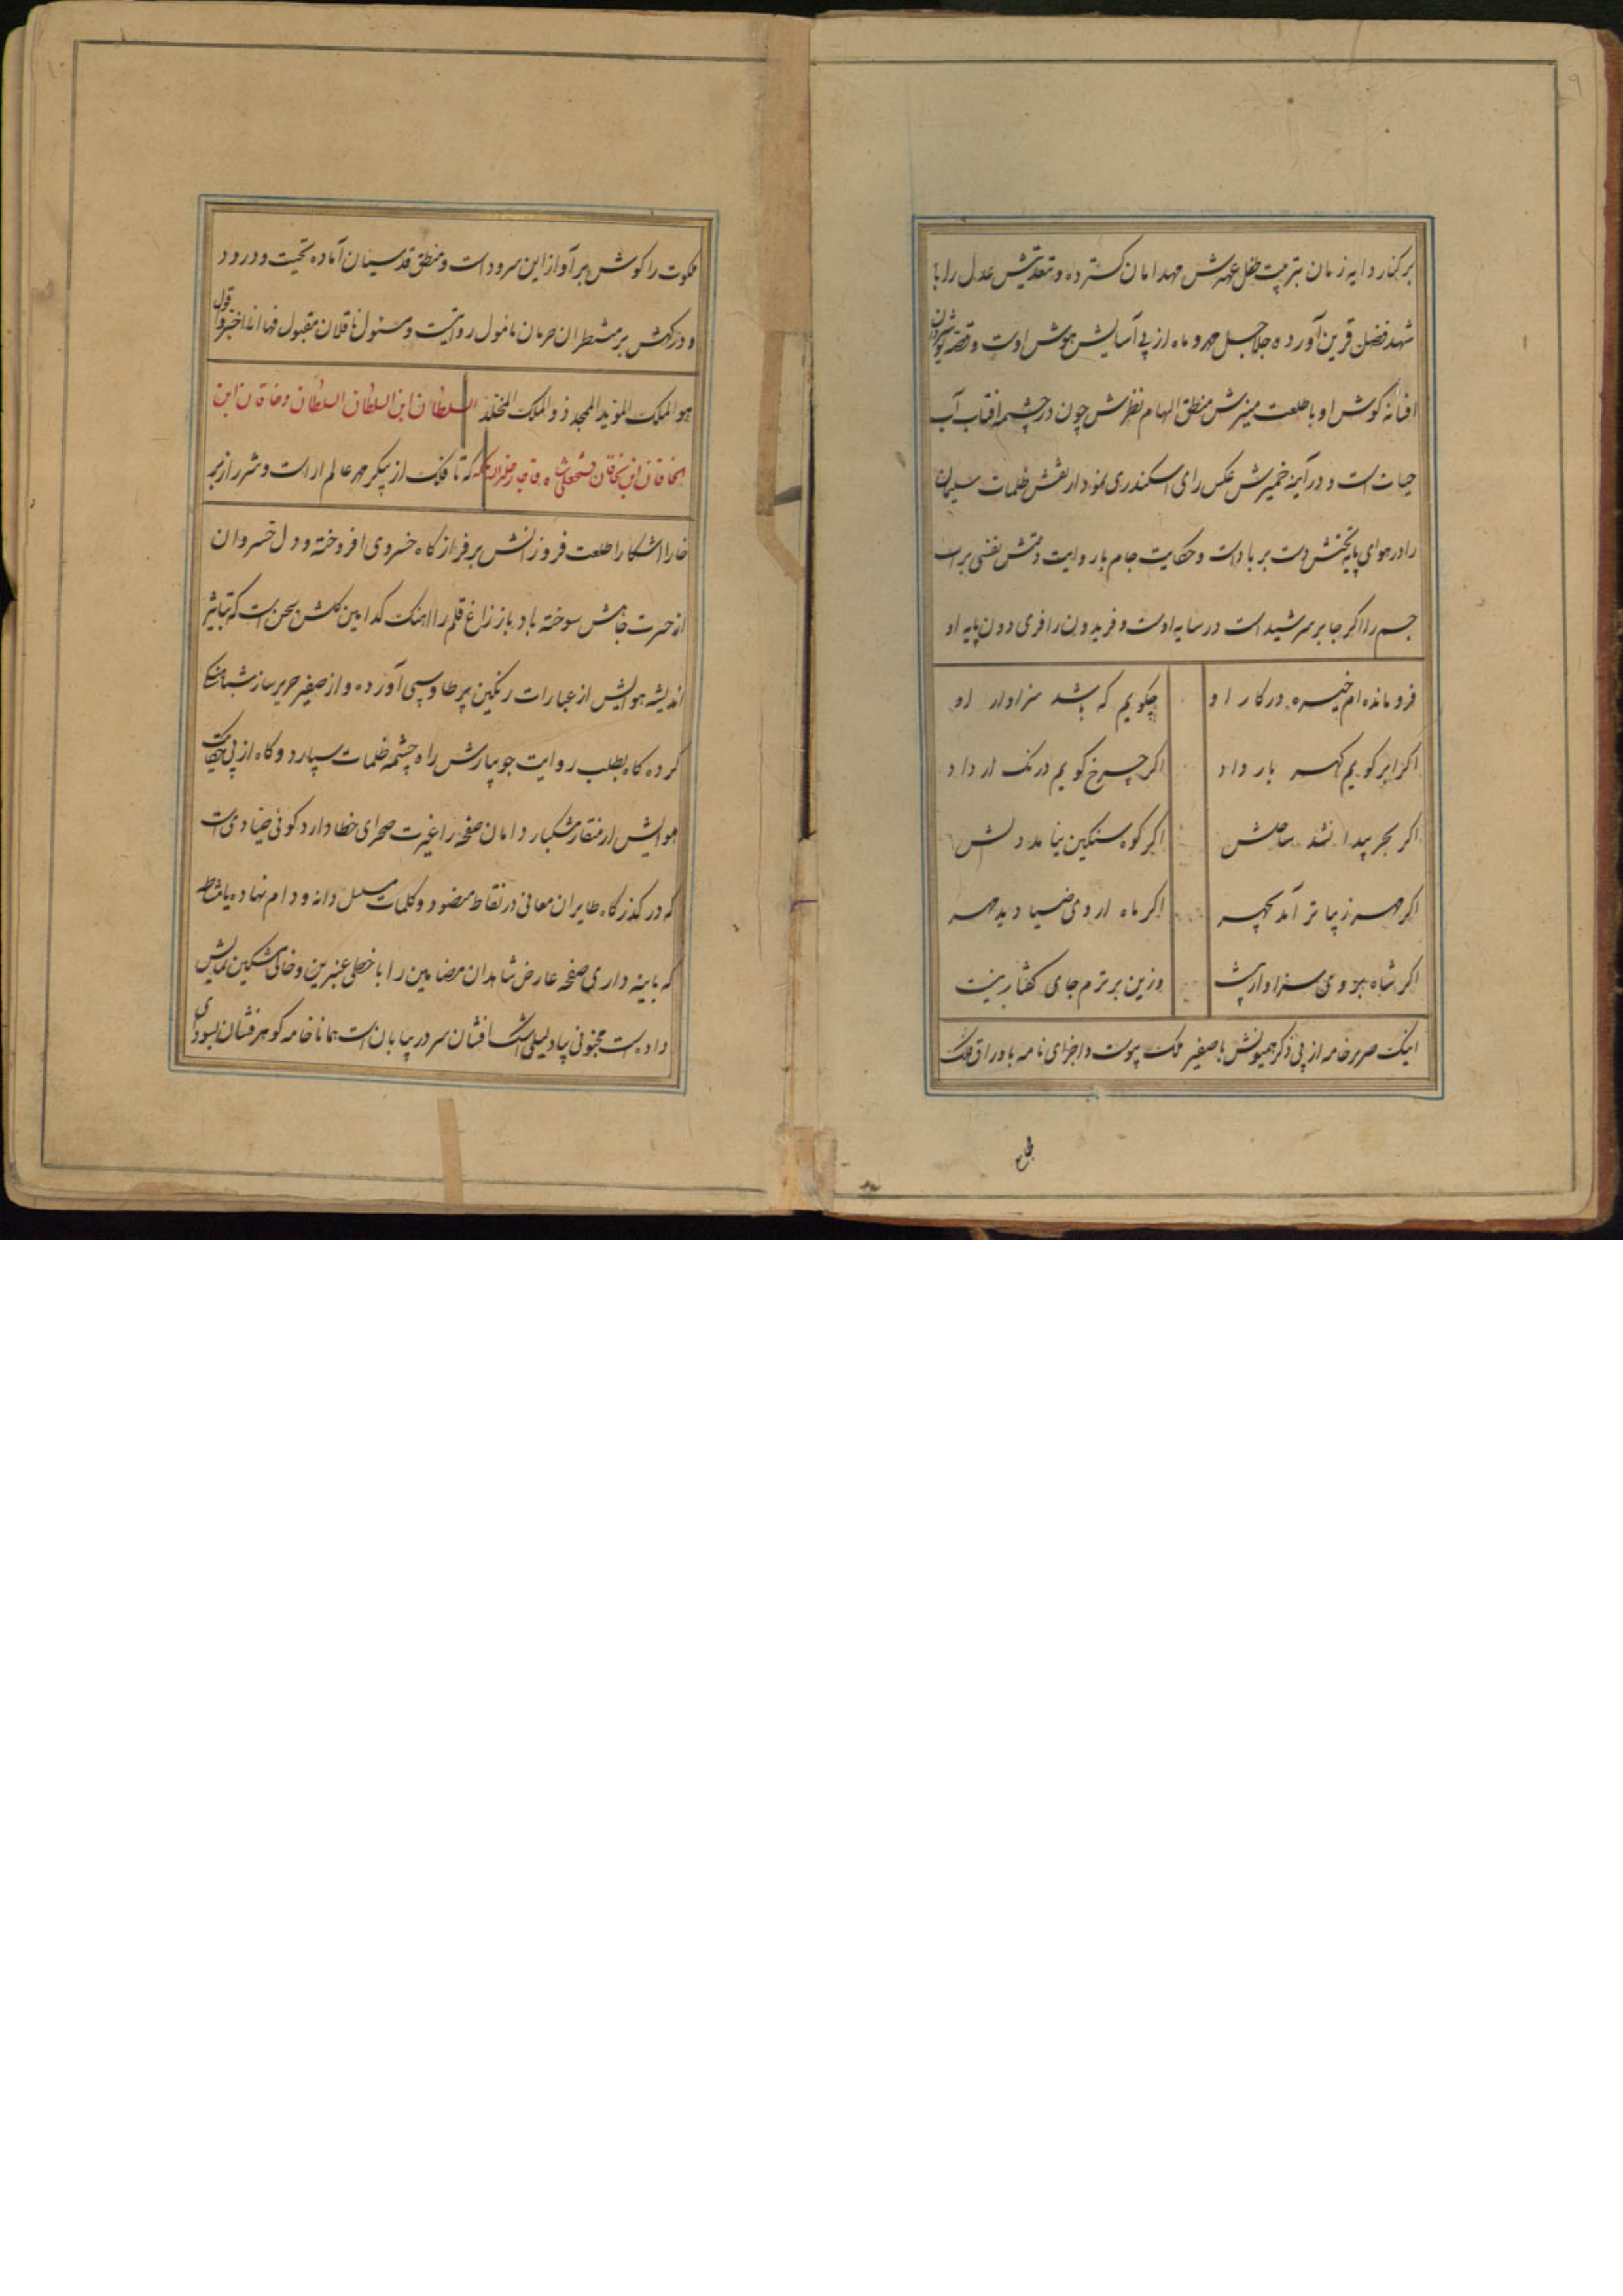 ۹
بر کنار دایه زمان بتربیت طفل عهدش مهد امان کسترده و تعدیتش عدل را با
شهد فضل قرین آورده جلاجل مهر و ماه از پی آسایش هوش اوست و قصه نوشیروان
افسانه کوش او با طلعت منیرش منطق الهام نظرش چون در چشمه افتاب آب
حیات است و در آینه ضمیرش عکس رای اسکندری نمودار نقش ظلمات سلیمان
را در هوای پایه تختش دست بر باد است و حکایت جام بار وایت دستش نقشی بر اب
جم را اکر جا بر سر شید است در سایه اوست و فریدون را فری دون پایه او
فرو مانده ام خیره در کار او چکویم که باشد سزاوار او
اکر ابر کویم کهر بار داد اکر چرخ کویم درنک ار داد
اکر بحر پیدا نشد ساحلش اکر کوه سنکین نیامد دلش
اکر مهر زیباتر آمد بچهر اکر ماه از وی ضیا دید مهر
اکر شاه بروی سزاوار نیست وزین برترم جای کفتار نیست
اینک صریر خامه از پی ذکر همیونش با صفیر ملک پیوست و اجزای نامه با اوراق فلک
۱۰
ملکوت را کوش بر آواز این سرود است و منطق قدسیان آماده تحیت و درود
و در کهش بر منتظران حرمان مامول رواتیت و مسئول ناقلان مقبول فها انا اختر و اقول
هو الملک الموید الممجد ذو الملک المخلد السلطان ابن السلطان السلطان و خاقان ابن
الخاقان ابن الخاقان فتحعلی شاه قاجار خلد الله ملکه که تا فلک از پیکر مهر عالم اراست و شرر از بر
خارا اشکارا طلعت فروزانش بر فراز کاه خسروی افروخته و دل خسروان
از حسرت جاهش سوخته باد باز زاغ قلم را اهنک کدامین کلشن سخن است که بتاثیر
اندیشه هوایش از عبارات رنکین پر طاوسی آورده و از صفیر صریر ساز
کرده کاه بطلب روایت جویبارش راه چشمه ظلمات سپارد و کاه از پی حکایت
هوایش از منقار مشکبار دامان صفحه را غیرت صحرای خطا دارد کوئی صیادی است
که در کذرکاه طایران معانی در نقاط منضود و کلمات مسلسل دانه و دام نهاده یا مشاطه
که باینه داری صفحه عارض شاهدان مضامین را با خطی عنبرین و خالی مشکین نمایش
داده است مجنونی بیاد لیلی اشک افشان سر در بیابان است همانا خامه کوهر فشان بسودای